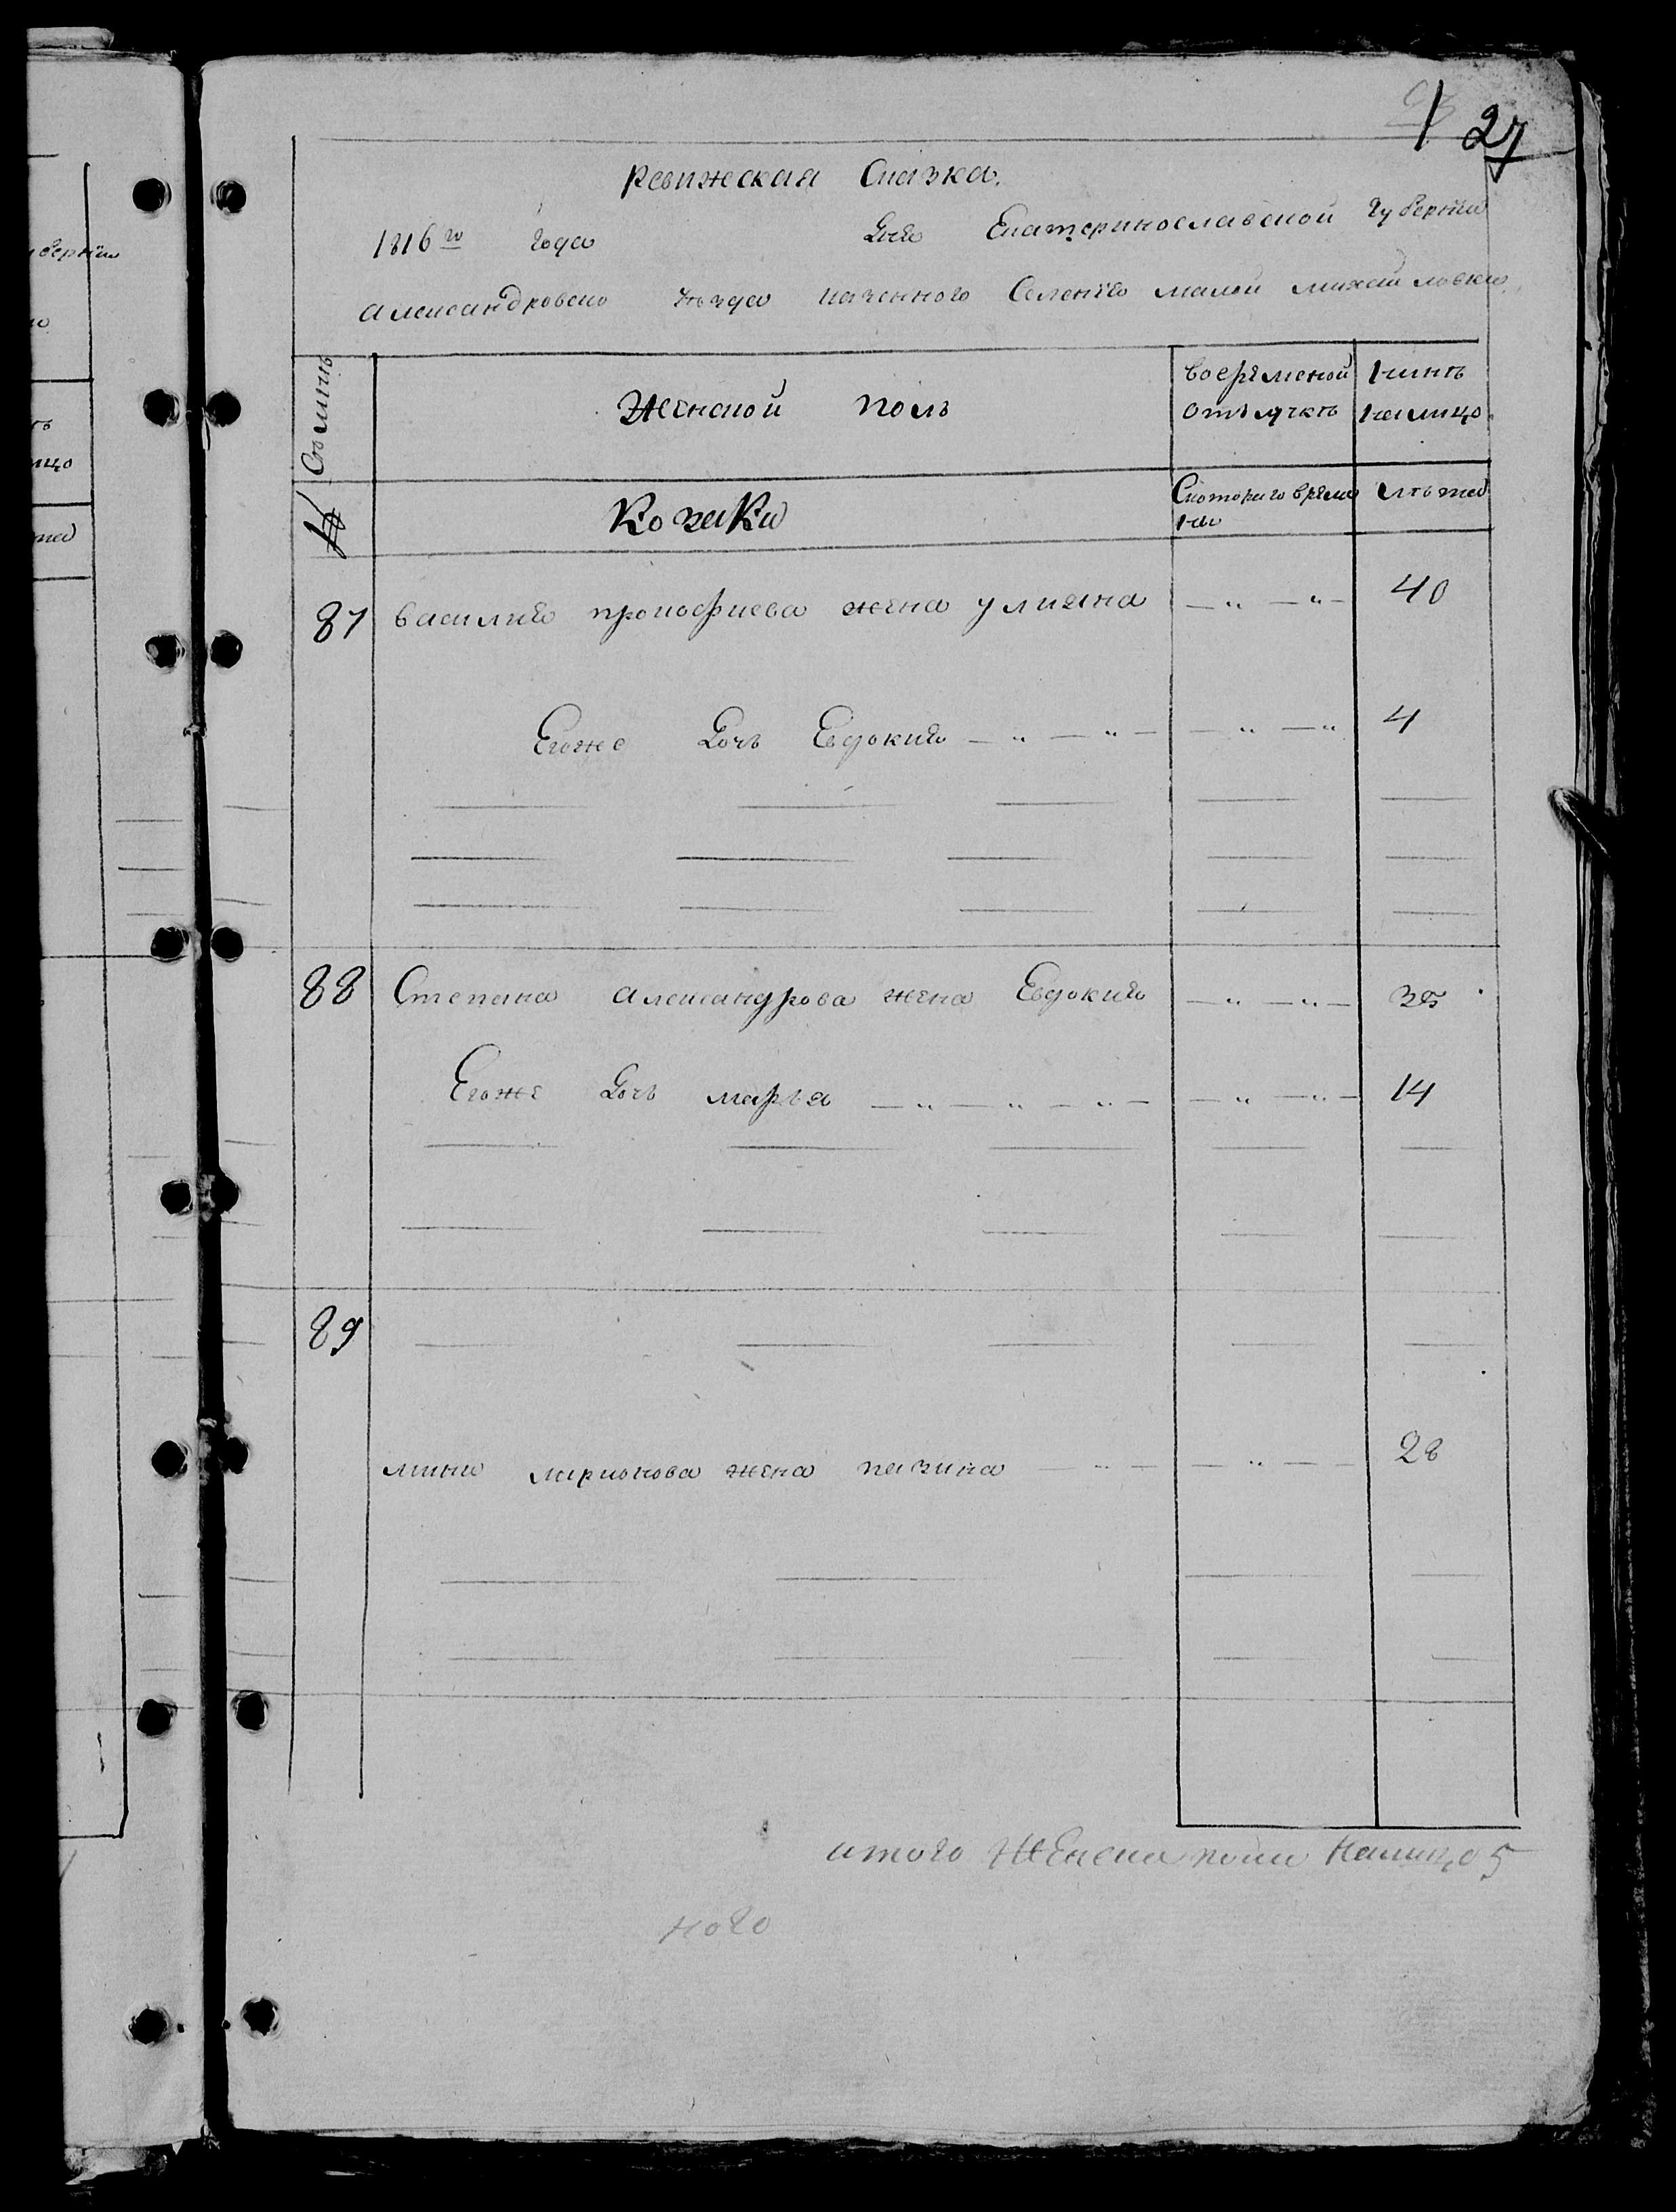 27
Ревижская Сказка.
1816го Года Дня Екатеринославской Губернии
александровско уезда казенного Селения малой михайловки
Семьи
Женской поль
вовременой отълучкъ
нинъ налицо
№
Козаки
Скоторого времени
лѣта
87 василия прокофиева жена улияна — „ — „ — 40
Егоже Дочь Евдокия — „ — „ — — „ — „ 4
88 Степана александрова жена Евдокия — „ — „ — 35
Егоже Дочь марья — „ — „ — „ — — „ — „ — 14
89
мины ларионова жена 28
итого Женска пола Налицо 5
ного